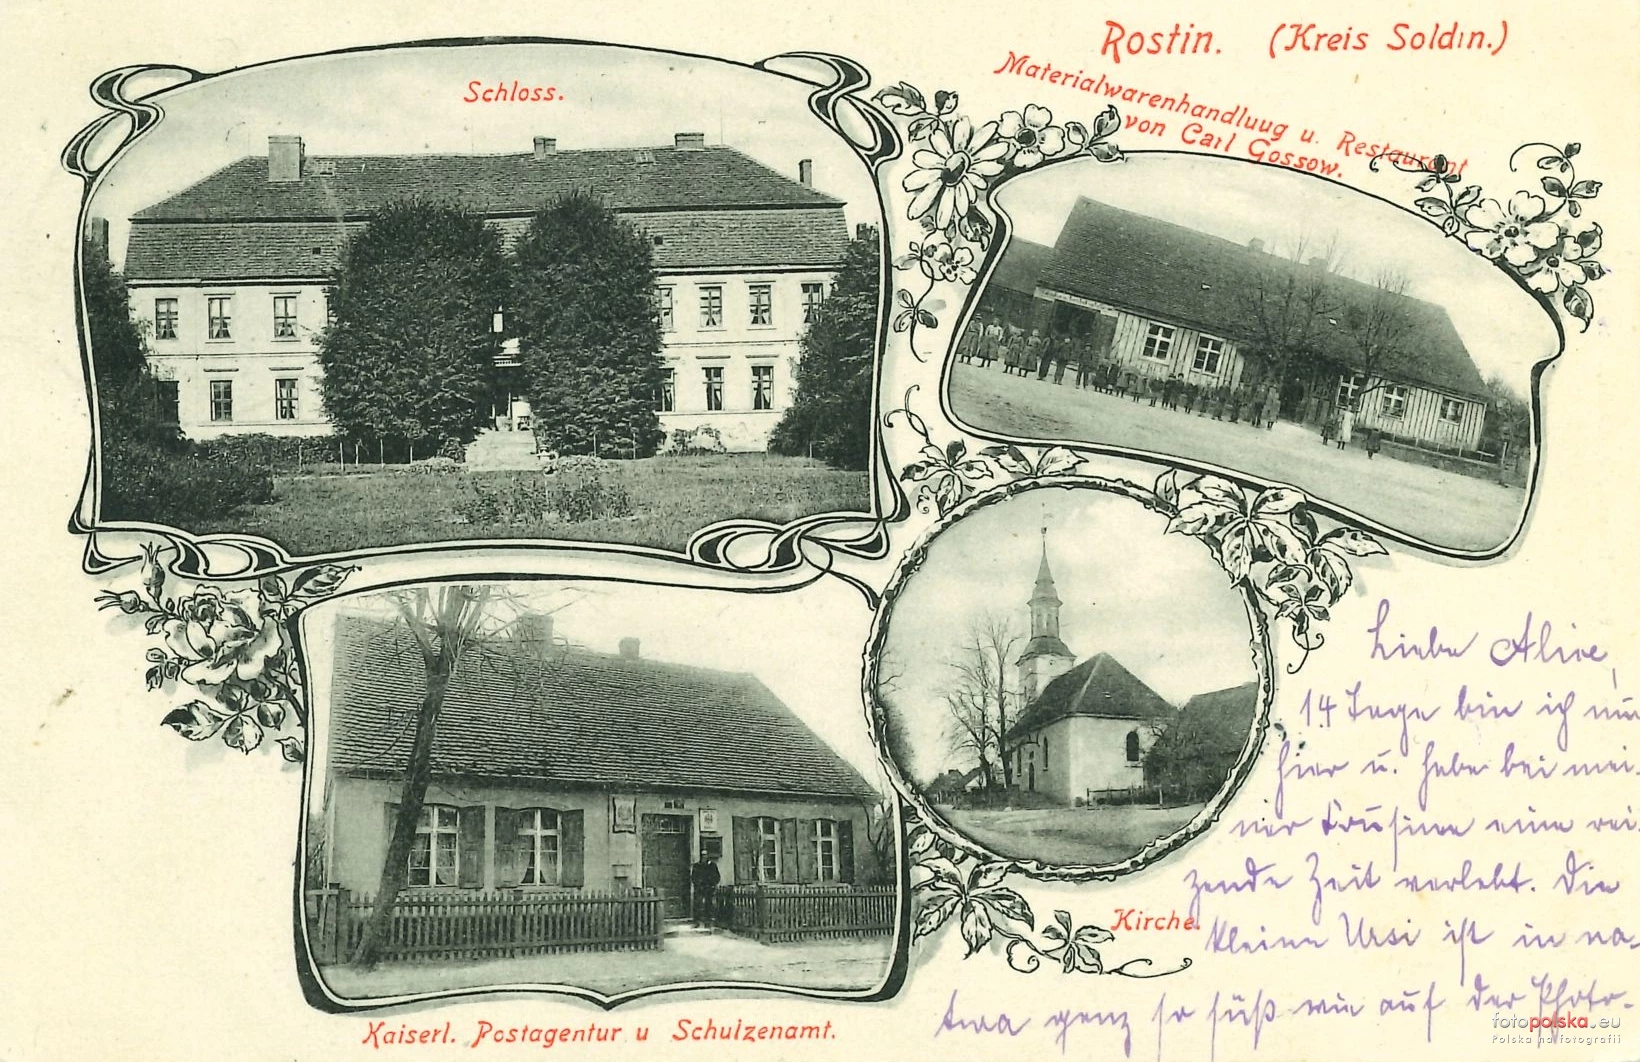 Rostin. (Kreis Soldin.)
Materialwarenhandluug u. Restaurant
von Carl Gossow.
Schloss.
Kirche.
Kaiserl. Postagentur u Schulzenamt.
Liebe Alice,
14 Tage bin ich nun
hier u. habe bei mei-
ner Cousine eine rei-
zende Zeit verlebt. Die
kleine Ursi ist in na-
tura ganz so süß wie auf der Photo-
fotopolska.eu
Polska na fotografii